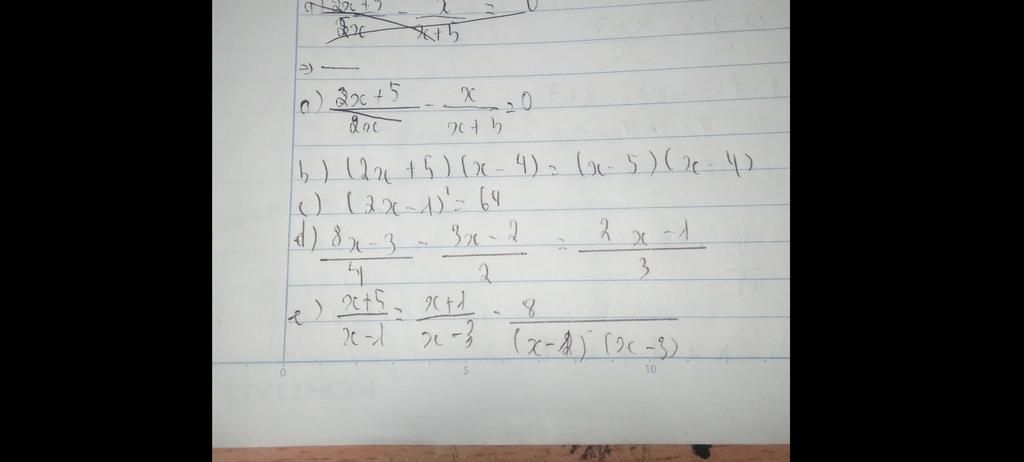 a) 2x+5/3x - x/x+5 = 0
=> —
a) 2x+5/2x - x/x+5 = 0
b) (2x+5)(x-4) = (x-5)(x-4)
c) (2x-1)² = 64
d) 8x-3/4 - 3x-2/2 = 2x-1/3
e) x+5/x-1 = x+1/x-3 - 8/(x-1)(x-3)
0 5 10